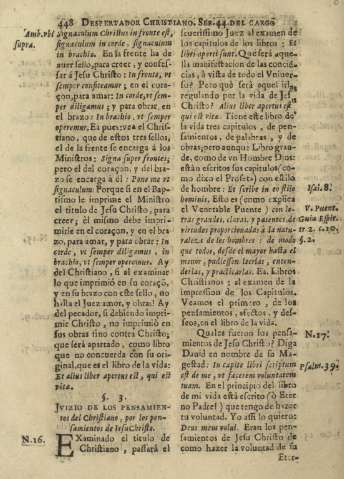 448 DESPERTADOR CHRISTIANO. SER. 44. DEL CARGO
Amb. vbi
supra.
Signaculum Christus in fronte est,
signaculum in corde, signaculum
in brachio. En la frente ha de
auer sello, para creer, y confes-
sar à Jesu Christo: In fronte, vt
semper confiteamur; en el cora-
çon, para amar: In corde, vt sem-
per diligamus; y para obrar, en
el brazo: In brachio, vt semper
operemur. Ea pues, vea el Christi
ano, que de estos tres sellos,
el de la frente se encarga à los
Ministros: Signa super frontes;
pero el del coraçon, y del bra-
zo se encarga à èl: Pone me vt
signaculum: Porque si en el Bap-
tismo le imprime el Ministro
el titulo de Jesu Christo, para
creer; èl mismo debe impri-
mirle en el coraçon, y en el bra-
zo, para amar, y para obrar: In
corde, vt semper diligamus, in
brachio, vt semper operemur. Ay
del Christiano, si al examinar
lo que imprimiò en su coraçõ,
y en su brazo con este sello, no
halla el Juez amor, y obras! Ay
del pecador, si debiendo impri-
mir Christo, no imprimiò en
sus obras sino contra Christo;
que serà apartado, como libro
que no concuerda con su ori-
ginal, que es el libro de la vida:
Et alius liber apertus est, qui est
vita.
§. 3.
JVIZIO DE LOS PENSAMIEN-
tos del Christiano, por los pen-
samientos de Jesu Christo.
N.16.
Examinado el titulo de
Christiano, passarà el
seuerissimo Juez al examen de
los capitulos de los libros: Et
libri aperti sunt. Pero que serà
la manifestacion de las concié-
cias, à vista de todo el Vniuer-
so? Pero què serà aquel ir
regulando por la vida de Jesu
Christo? Alius liber apertus est
qui est vita. Tiene este libro de
la vida tres capitulos, de pen-
samientos, de palabras, y de
obras; pero aunque Libro gran-
de, como de vn Hombre Dios;
estàn escritos sus capitulos, co-
mo dixo el Profeta, con estilo
de hombre: Et scribe in eo stilo
hominis. Esto es (como explica
el Venerable Puente) con le-
tras grandes, claras, y patentes de
virtudes proporcionadas à la natu-
raleza de los hombres: de modo
que todos, desde el mayor hasta el
menor, pudiessen leerlas, enten-
derlas, y practicarlas. Ea, Libros
Christianos; al examen de la
impression de los Capitulos.
Veamos el primero, de los
pensamientos, afectos, y def-
seos, en el libro de la vida.
Isai. 8.
V. Puent.
Guia Espir.
§. 2.
N.17.
Quales fueron los pensa-
mientos de Jesu Christo? Diga
Dauid en nombre de su Ma-
gestad: In capite libri scriptum
est de me, vt facerem voluntatem
tuam. En el principio del libro
de mi vida està escrito (ò Eter-
no Padre!) que tengo de hazer
tu voluntad. Yo assi lo quiero:
Deus meus volui. Eran los pen-
samientos de Jesu Christo de
como hazer la voluntad de su
Psalm. 39.
Eter-